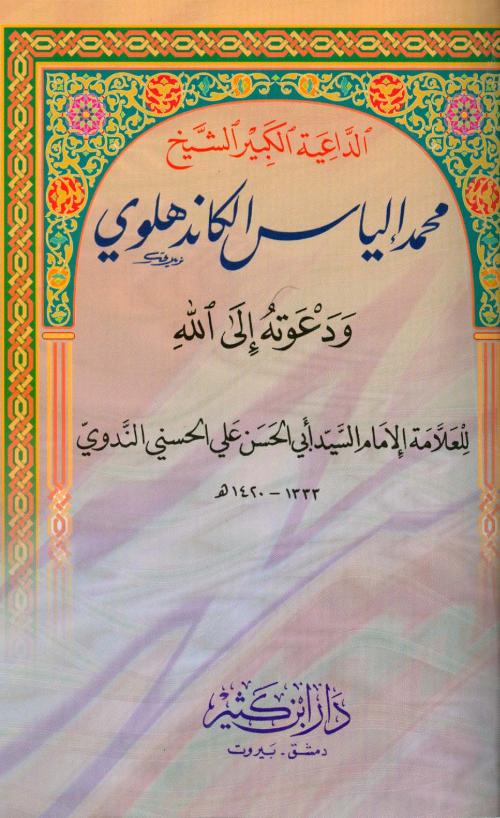 الدَّاعِيَة الكَبِير الشَّيْخ
محمد إلياس الكاندهلوي
وَدَعْوَتهُ إِلَى اللهِ
لِلْعَلَّامَة الإمَام السَّيِّد أَبِي الحَسَن عَلي الحسَني النَّدويّ
١٣٣٣ - ١٤٢٠ هـ
دَار ابْن كَثِير
دمشق - بيروت